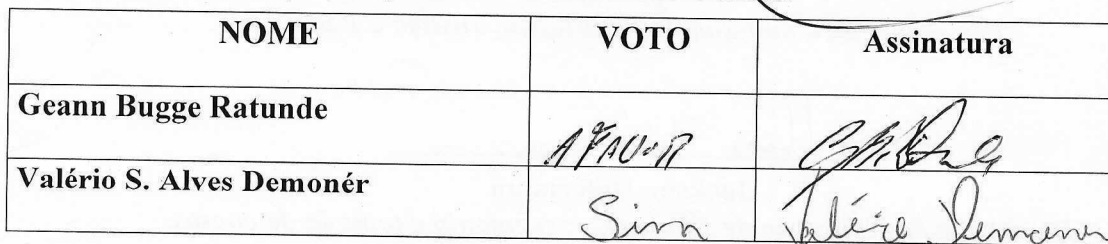 NOME VOTO Assinatura
Geann Bugge Ratunde
A FAVOR
Valério S. Alves Demonér
Sim Valério Demoner